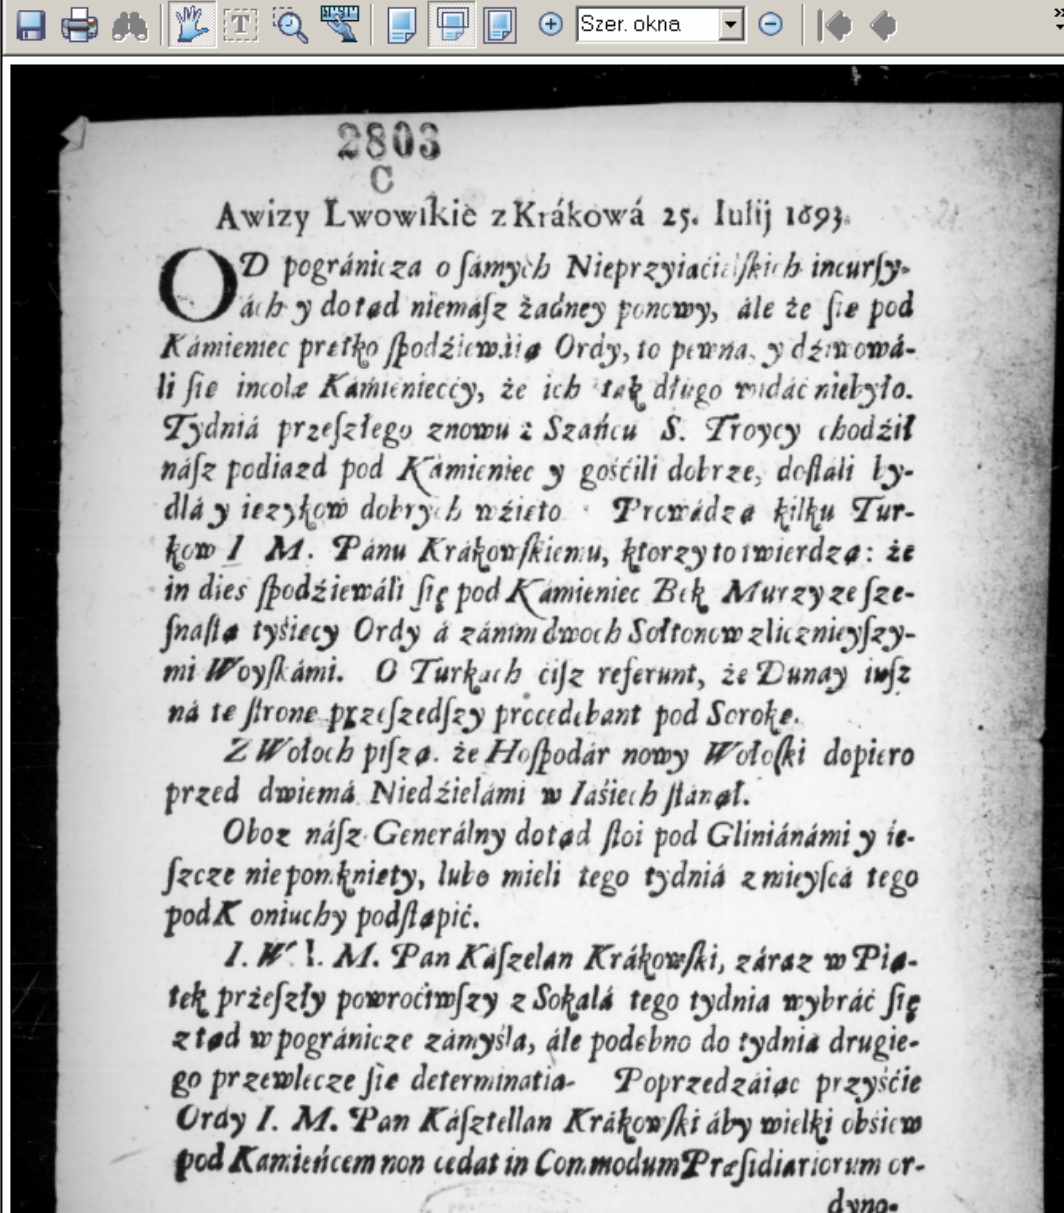 Szer. okna
2803
C
Awizy Lwowſkie z Krákowá 25. Iulij 1693.
OD pogránicza o ſámych Nieprzyiaćielſkich incurſy-
ách y dotąd niemáſz żadney ponowy, ále że ſie pod
Kámieniec prętko ſpodźiewáią Ordy, to pewna, y dźiwowá-
li ſie incolæ Kámienieccy, że ich ták długo widáć niebyło.
Tydniá przeſzłego znowu z Szańcu S. Troycy chodźił
náſz podiazd pod Kámieniec y gośćili dobrze, doſtáli by-
dłá y ięzykow dobrych wźięto Prowádzą kilku Tur-
kow I M. Pánu Krákowſkiemu, ktorzy to twierdzą: że
in dies ſpodźiewáli ſię pod Kámieniec Bek Murzy ze ſze-
ſnaſtą tyśięcy Ordy á zánim dwoch Sołtonow z licznieyſzy-
mi Woyſkámi. O Turkach ciſz referunt, że Dunay iuſz
ná te ſtronę przeſzedſzy procedebant pod Sorokę.
Z Wołoch piſzą. że Hoſpodár nowy Wołoſki dopiero
przed dwiemá Niedźielámi w Iáśiech ſtánął.
Oboz náſz Generálny dotąd ſtoi pod Gliniánámi y ie-
ſzcze nie pomkniety, lubo mieli tego tydniá z mieyſcá tego
pod K oniuchy podſtąpić.
I. W. I. M. Pan Káſzelan Krákowſki, záraz w Pią-
tek przeſzły powroćiwſzy z Sokalá tego tydnia wybráć ſię
ztąd w pogránicze zámyśla, ále podobno do tydniá drugie-
go przewlecze ſie determinatia- Poprzedzáiąc przyśćie
Ordy I. M. Pan Káſztellan Krákowſki áby wielki obśiew
pod Kamieńcem non cedat in Commodum Præſidiariorum or-
dyno-